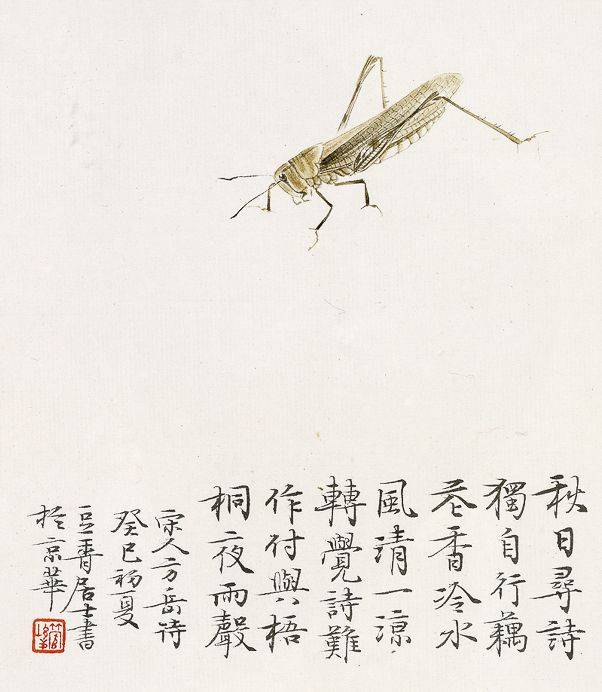 秋日尋詩
獨自行藕
花香冷水
風清一涼
轉覺詩難
作付與梧
桐夜雨聲
宋人方岳诗
癸巳初夏
豆青居士書
於京華